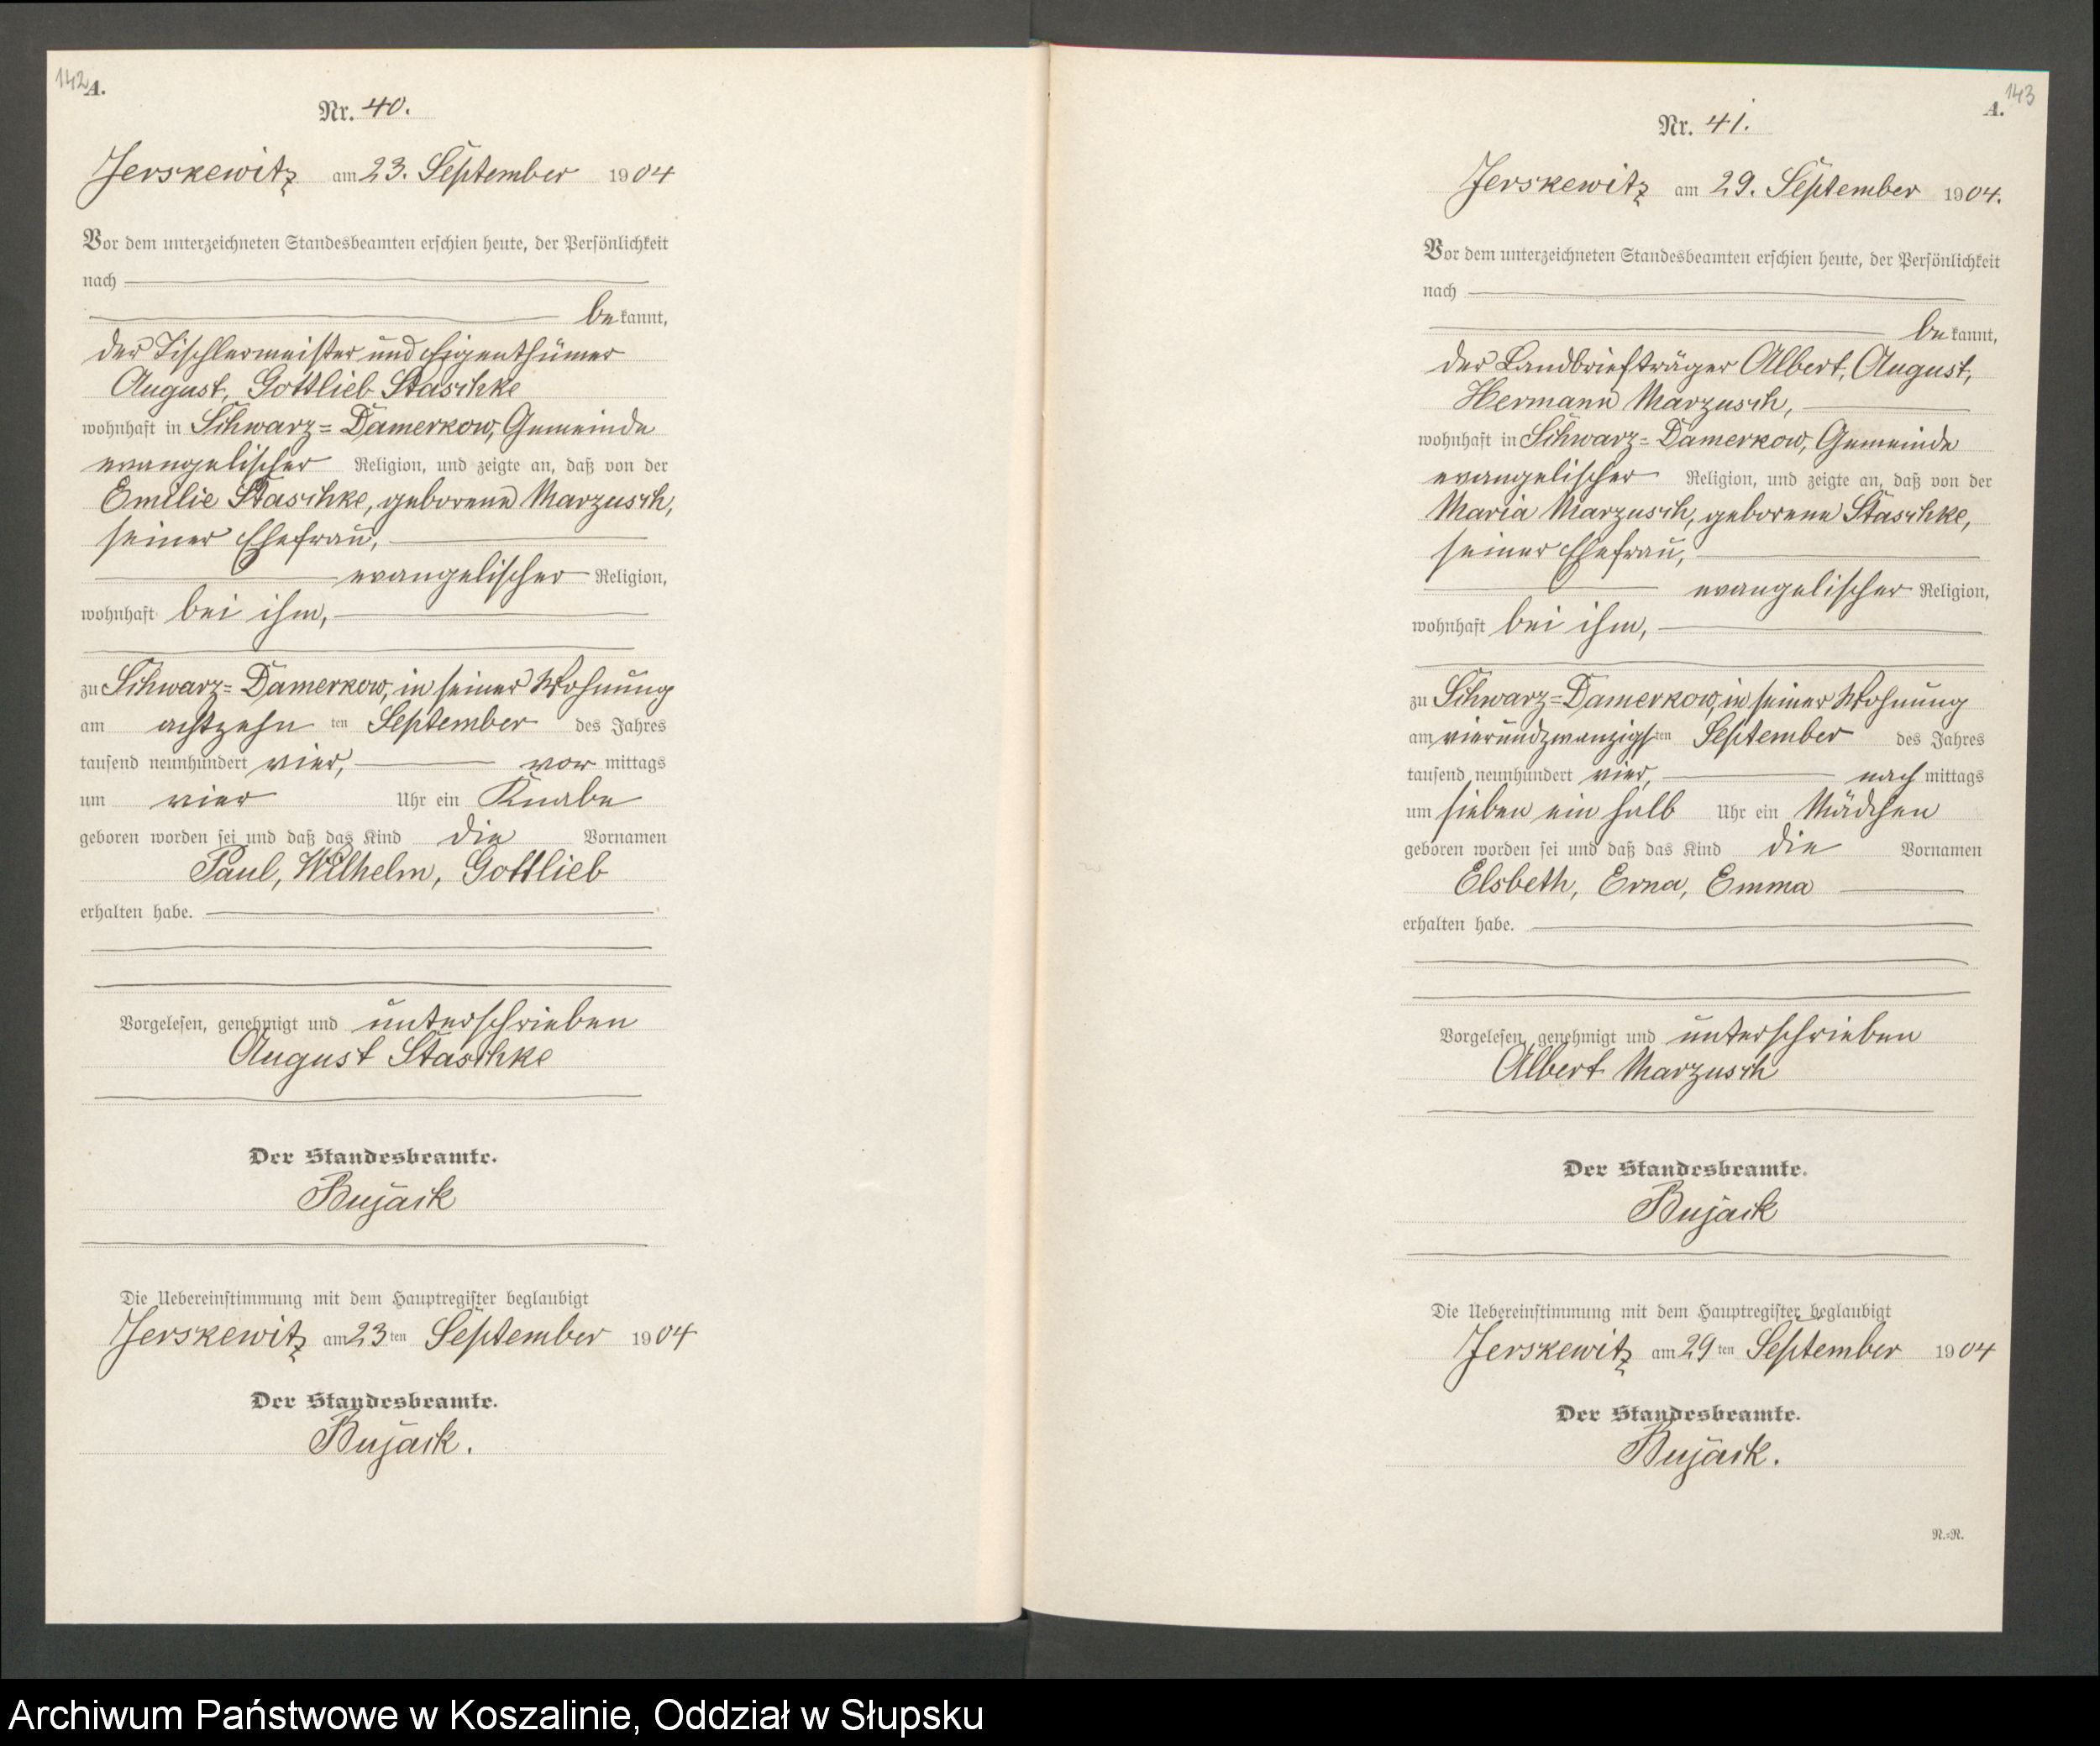 142
A.
Nr. 40.
Jerskewitz am 23. September 1904
Vor dem unterzeichneten Standesbeamten erschien heute, der Persönlichkeit
nach
bekannt,
der Tischlermeister und Eigenthümer
August, Gottlieb Staschke
wohnhaft in Schwarz-Damerkow, Gemeinde
evangelischer Religion, und zeigte an, daß von der
Emilie Staschke, geborene Marzusch,
seiner Ehefrau,
evangelischer Religion,
wohnhaft bei ihm,
zu Schwarz-Damerkow, in seiner Wohnung
am achtzehn ten September des Jahres
tausend neunhundert vier, vor mittags
um vier Uhr ein Knabe
geboren worden sei und daß das Kind die Vornamen
Paul, Wilhelm, Gottlieb
erhalten habe.
Vorgelesen, genehmigt und unterschrieben
August Staschke
Der Standesbeamte.
Bujack
Die Uebereinstimmung mit dem Hauptregister beglaubigt
Jerskewitz am 23 ten September 1904
Der Standesbeamte.
Bujack.
143
A.
Nr. 41.
Jerskewitz am 29. September 1904.
Vor dem unterzeichneten Standesbeamten erschien heute, der Persönlichkeit
nach
bekannt,
der Landbriefträger Albert, August,
Hermann Marzusch,
wohnhaft in Schwarz-Damerkow, Gemeinde
evangelischer Religion, und zeigte an, daß von der
Maria Marzusch, geborene Staschke,
seiner Ehefrau,
evangelischer Religion,
wohnhaft bei ihm,
zu Schwarz-Damerkow, in seiner Wohnung
am vierundzwanzigsten September des Jahres
tausend neunhundert vier, nach mittags
um sieben ein halb Uhr ein Mädchen
geboren worden sei und daß das Kind die Vornamen
Elsbeth, Erna, Emma
erhalten habe.
Vorgelesen, genehmigt und unterschrieben
Albert Marzusch
Der Standesbeamte.
Bujack
Die Uebereinstimmung mit dem Hauptregister beglaubigt
Jerskewitz am 29 ten September 1904
Der Standesbeamte.
Bujack.
N.=N.
Archiwum Państwowe w Koszalinie, Oddział w Słupsku